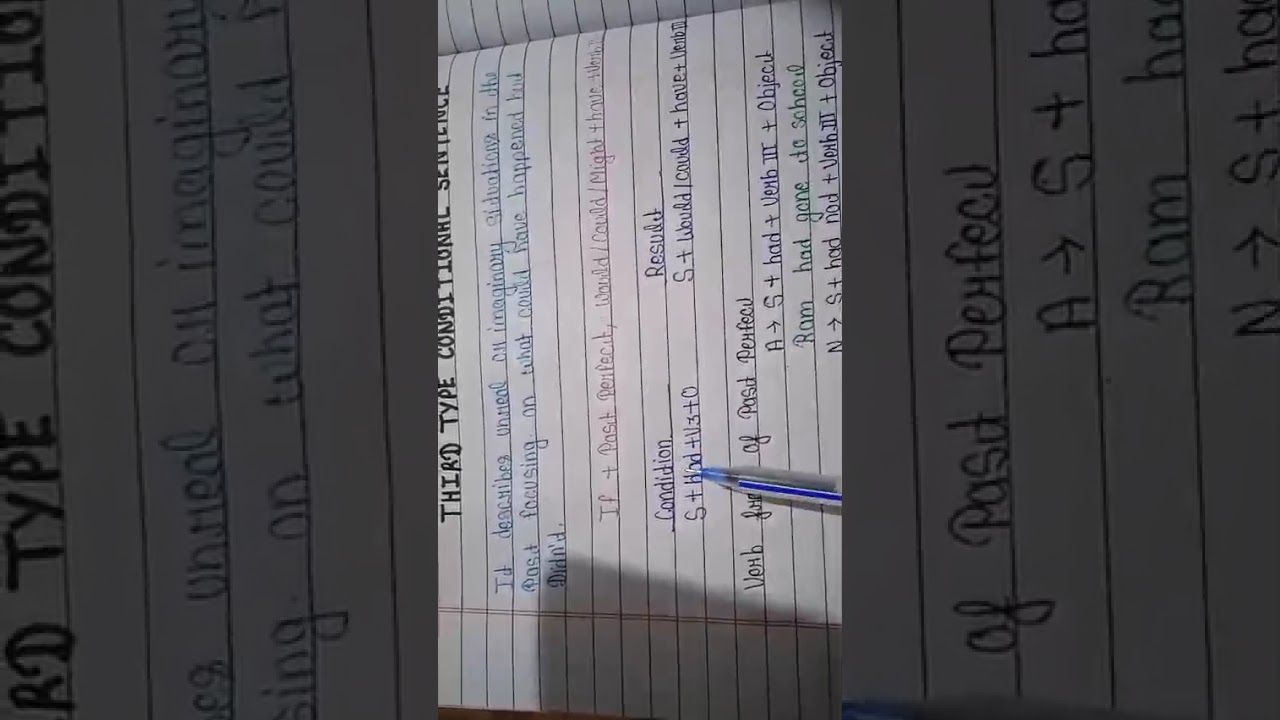 THIRD TYPE CONDITIONAL SENTENCE
It describes unreal or imaginary situations in the
Past focusing on what could have happened but
Didn't.
If + Past Perfect, Would/Could/Might + have + Verb III
Condition Result
S + Had + V3 + O S + Would/Could + have + Verb III
Verb of Past Perfect
A → S + had + Verb III + Object
Ram had gone to school
N → S + had not + Verb III + Object